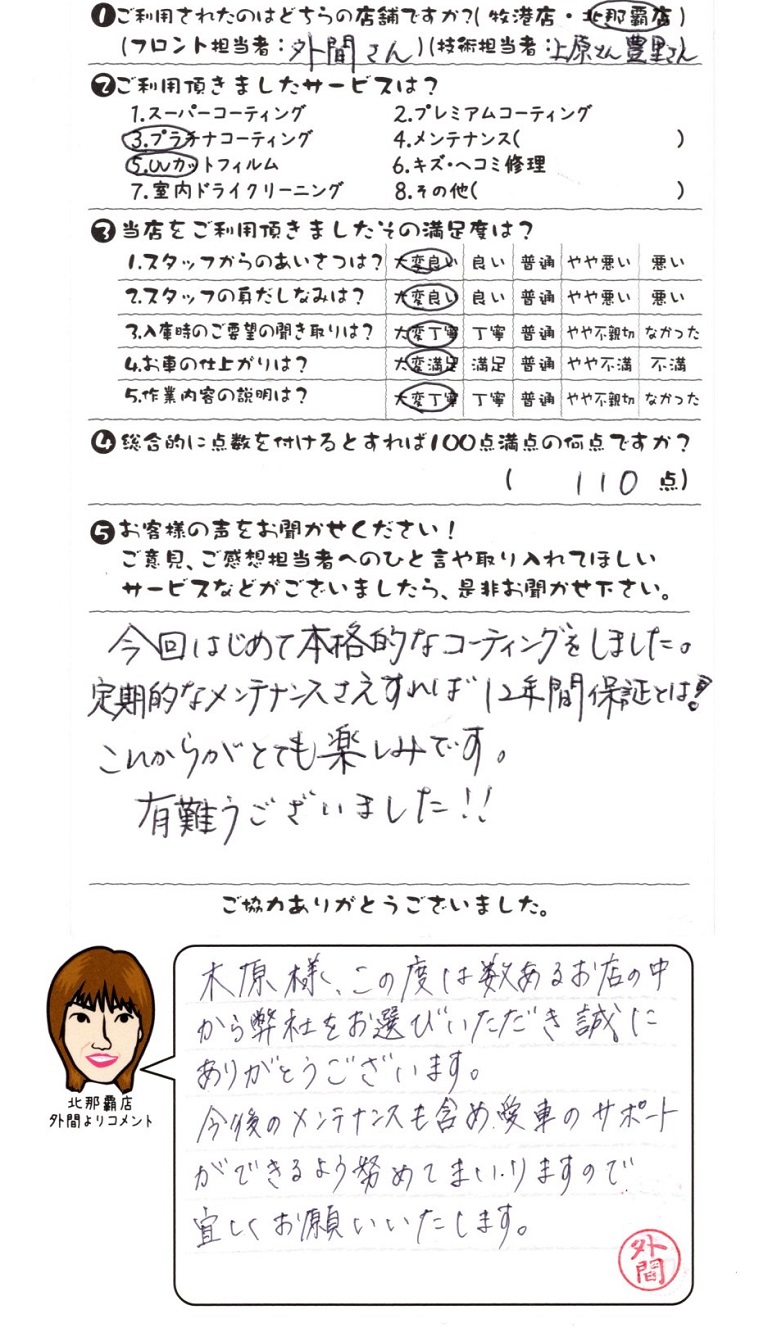 ❶ご利用されたのはどちらの店舗ですか?(牧港店・北那覇店)
(フロント担当者:外間さん)(技術担当者:上原さん 豊里さん
❷ご利用頂きましたサービスは?
1.スーパーコーティング 2.プレミアムコーティング
3.プラチナコーティング 4.メンテナンス( )
5.UVカットフィルム 6.キズ・ヘコミ修理
7.室内ドライクリーニング 8.その他( )
❸当店をご利用頂きましたその満足度は?
1.スタッフからのあいさつは? 大変良い 良い 普通 やや悪い 悪い
2.スタッフの身だしなみは? 大変良い 良い 普通 やや悪い 悪い
3.入庫時のご要望の聞き取りは? 大変丁寧 丁寧 普通 やや不親切 なかった
4.お車の仕上がりは? 大変満足 満足 普通 やや不満 不満
5.作業内容の説明は? 大変丁寧 丁寧 普通 やや不親切 なかった
❹総合的に点数を付けるとすれば100点満点の何点ですか?
( 110 点)
❺お客様の声をお聞かせください!
ご意見、ご感想担当者へのひと言や取り入れてほしい
サービスなどがございましたら、是非お聞かせ下さい。
今回はじめて本格的なコーティングをしました。
定期的なメンテナンスさえすれば12年間保証とは!
これからがとても楽しみです。
有難うございました!!
ご協力ありがとうございました。
木原様、この度は数あるお店の中
から弊社をお選びいただき誠に
ありがとうございます。
今後のメンテナンスも含め、愛車のサポート
ができるよう努めてまいりますので
宜しくお願いいたします。
北那覇店
外間よりコメント
外間